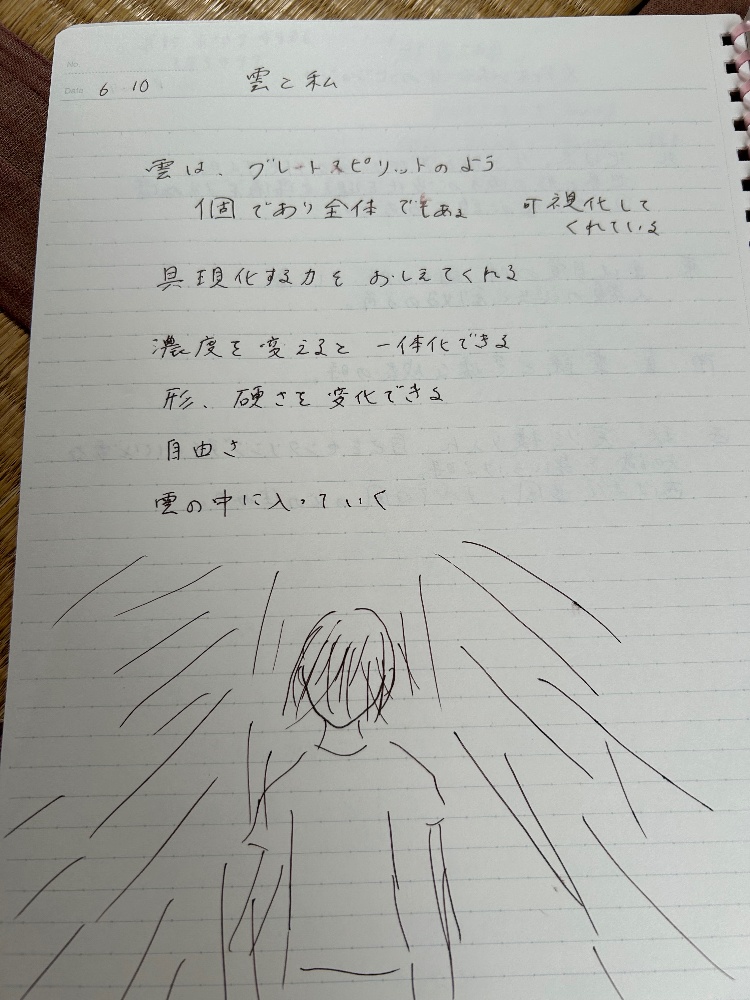 No.
Date 6 10
雲と私
雲は、グレートスピリットのよう
個であり全体でもある
可視化して
くれている
具現化する力をおしえてくれる
濃度を変えると一体化できる
形、硬さを変化できる
自由さ
雲の中に入っていく